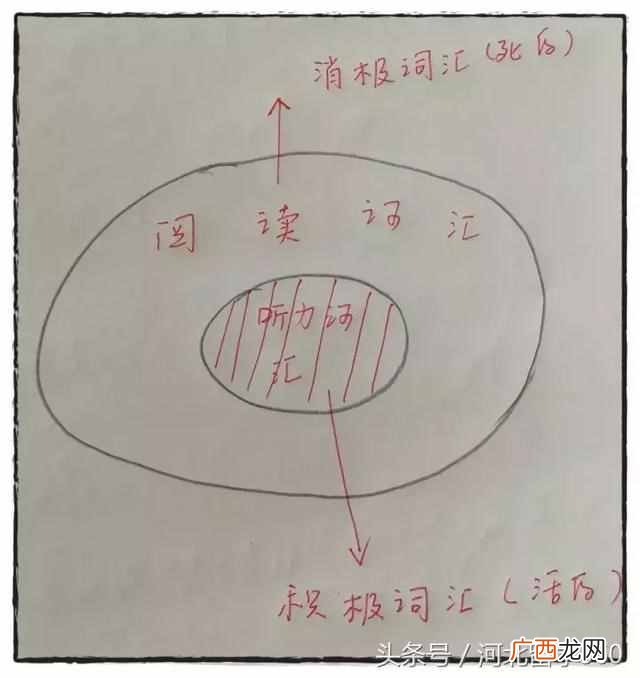 消极词汇(死的)
阅读词汇
听力词
汇
积极词汇(活的)
头条号/河北
广西龙网